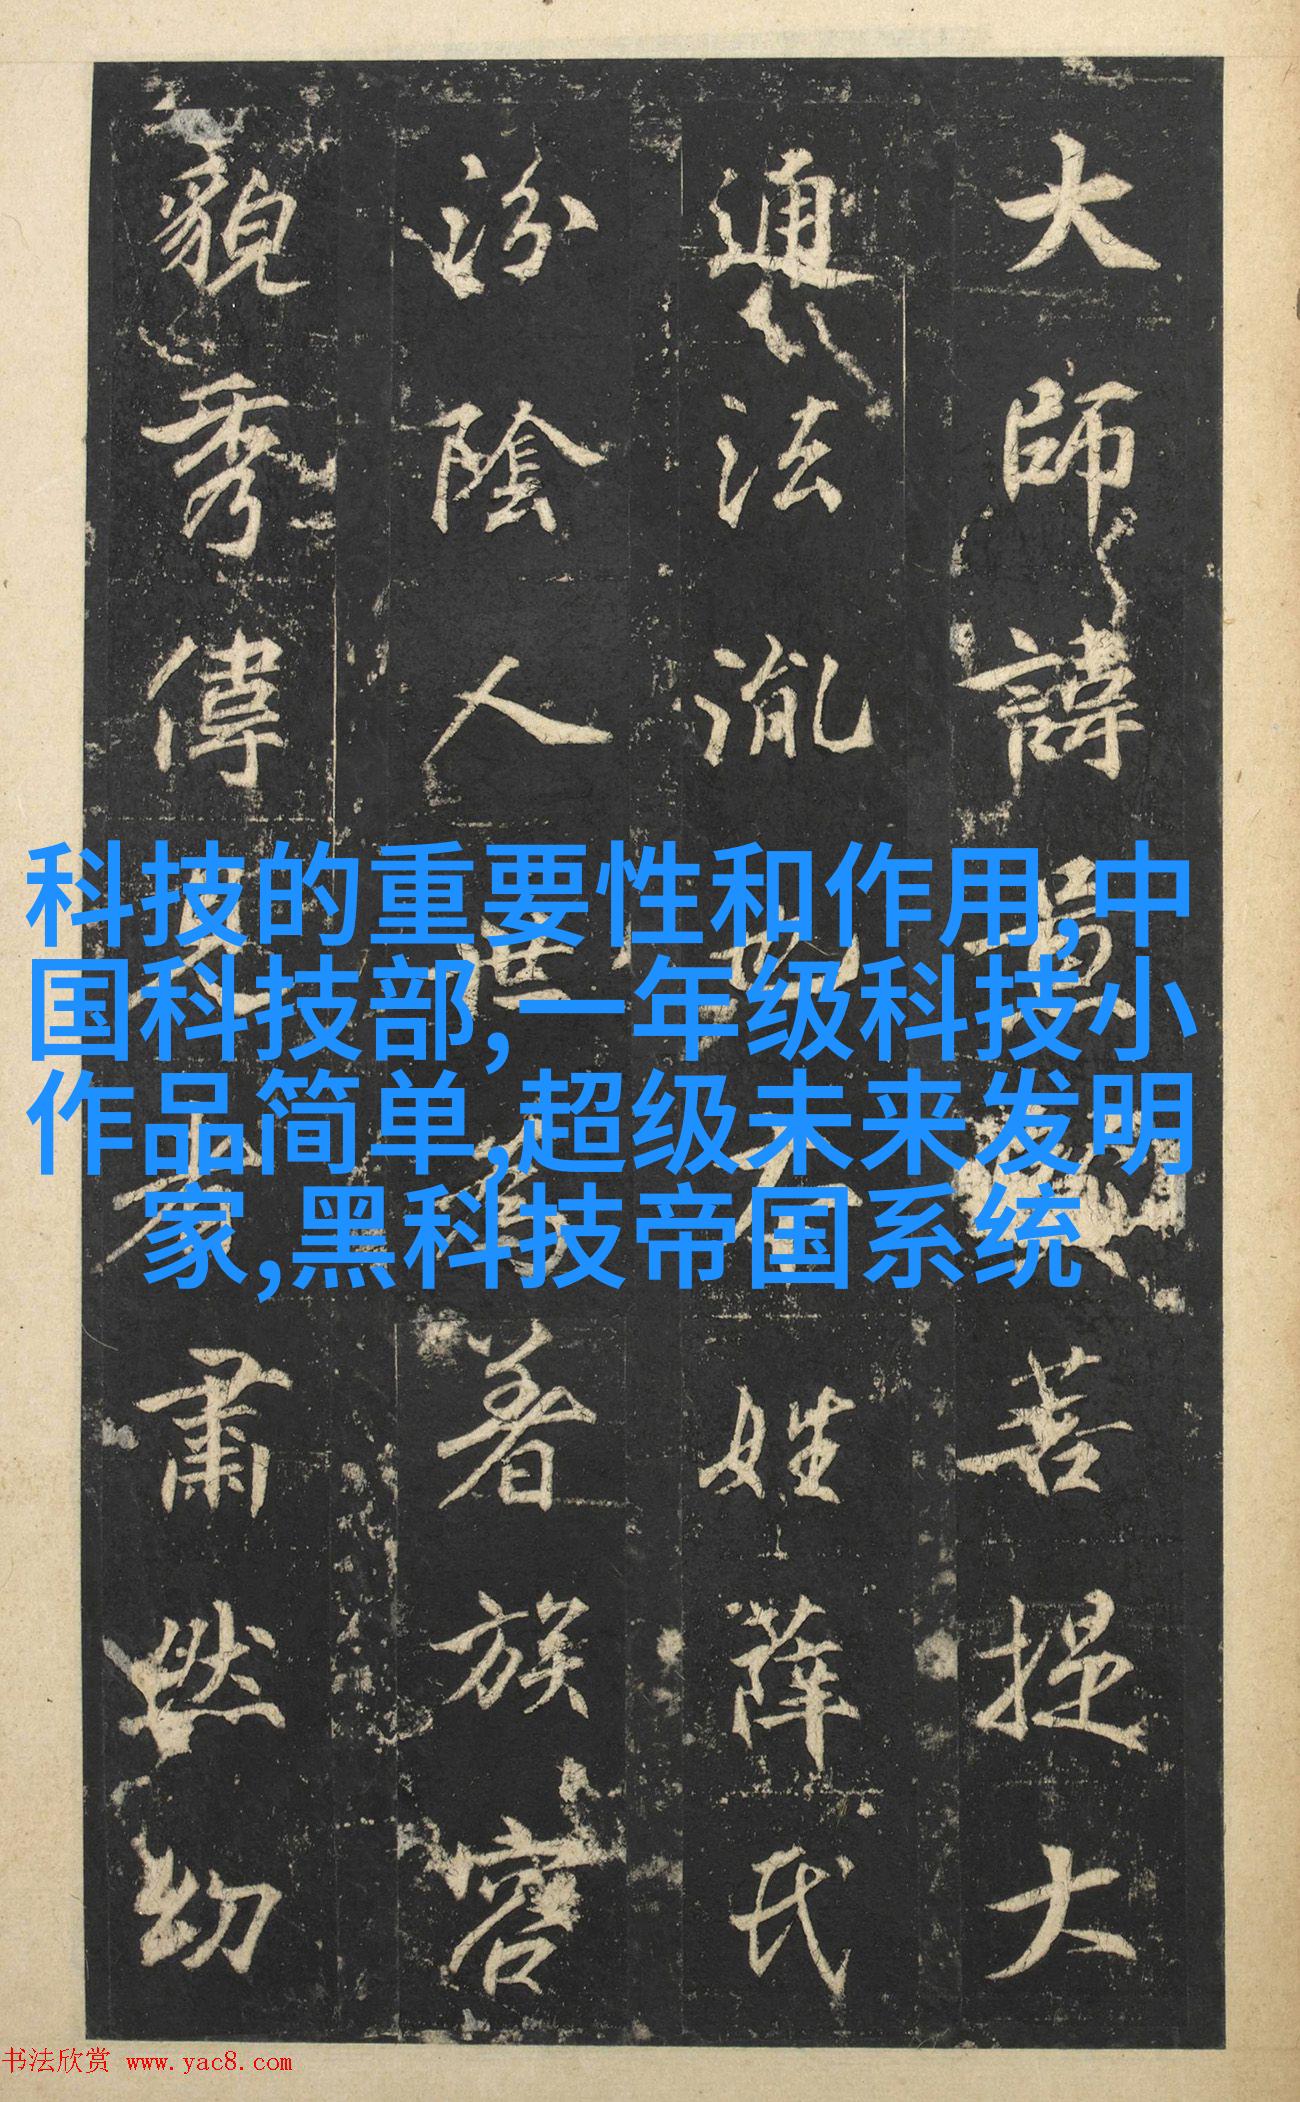 大師諱景菩提大
通法胤也本姓薛氏
汾陰人世為著族容
貌秀偉見者肅然幼
科技的重要性和作用,中
国科技部,一年级科技小
作品简单,超级未来发明
家,黑科技帝国系统
书法欣赏 www.yac8.com